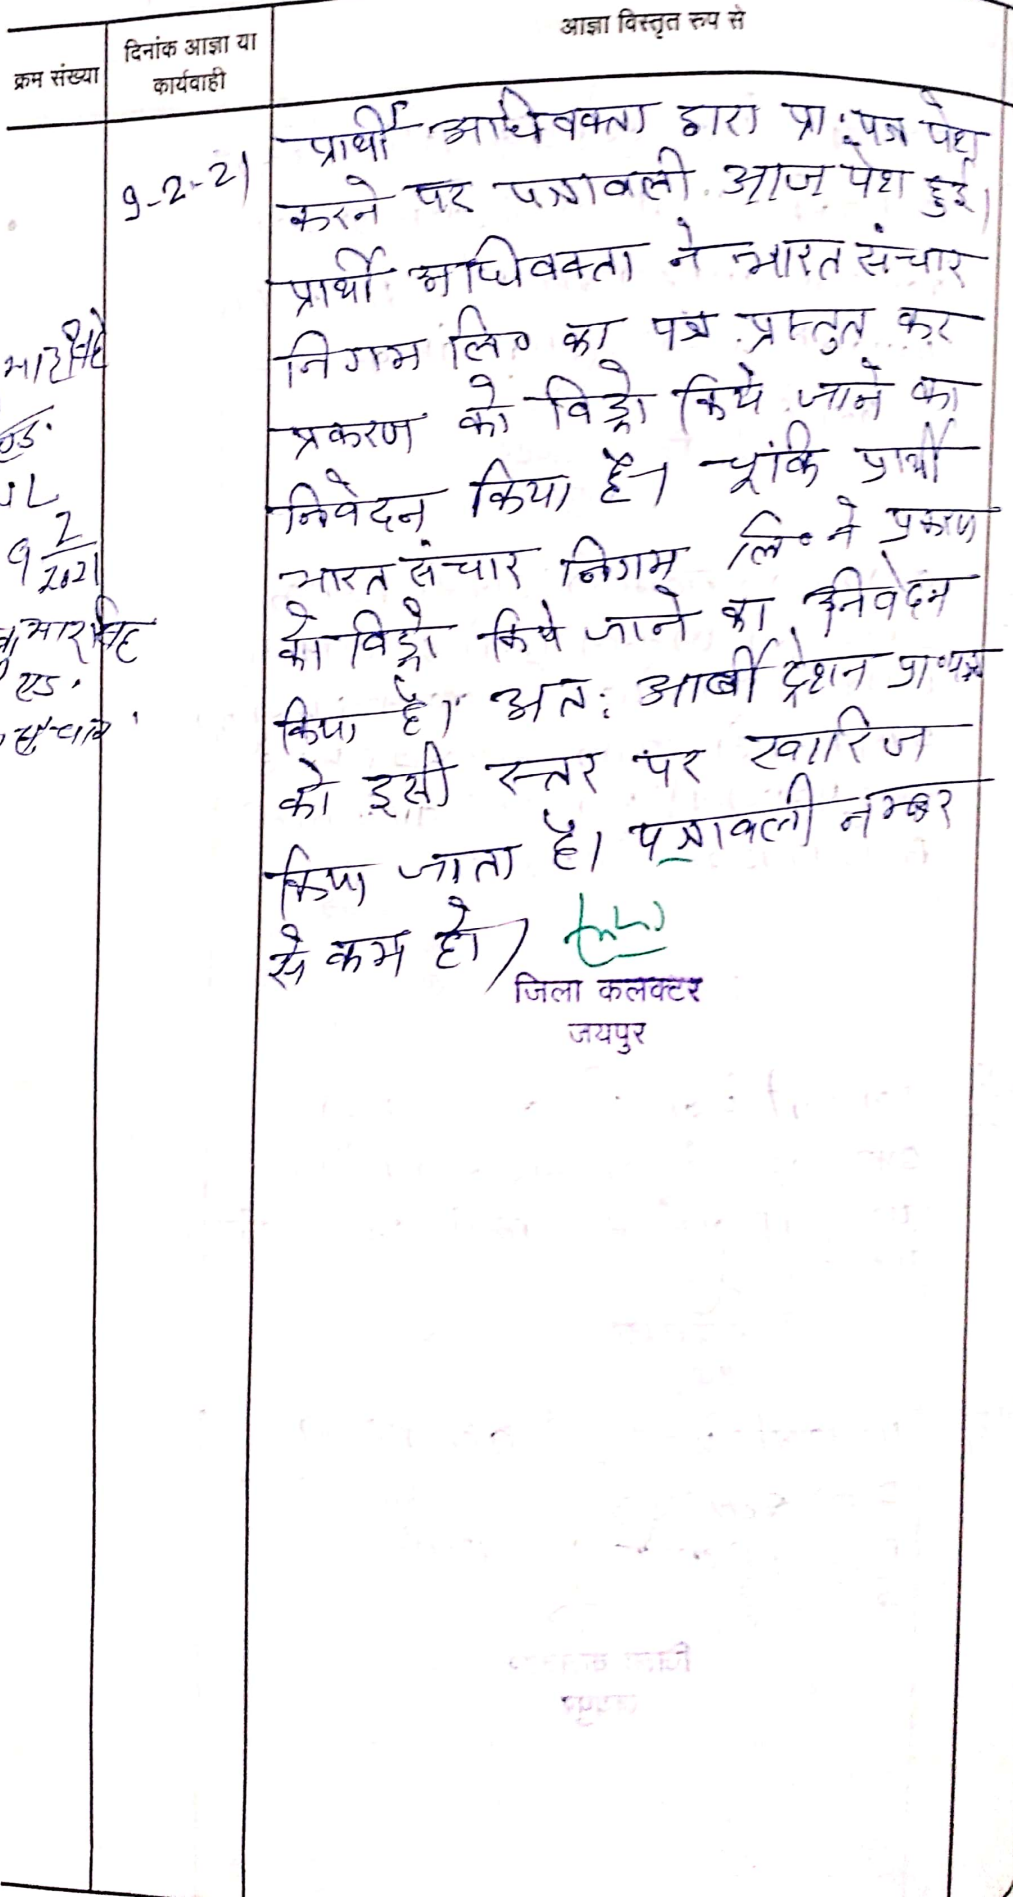 क्रम संख्या
दिनांक आज्ञा या
कार्यवाही
आज्ञा विस्तृत रुप से
9-2-21
प्रार्थी अधिवक्ता द्वारा प्रा॰पत्र पेश
करने पर पत्रावली आज पेश हुई।
प्रार्थी अधिवक्ता ने भारत संचार
निगम लि० का पत्र प्रस्तुत कर
प्रकरण को विड्रो किये जाने का
निवेदन किया है। चूंकि प्रार्थी
भारत संचार निगम लि॰ ने प्रकरण
को विड्रो किये जाने का निवेदन
किया है। अतः आर्बीट्रेशन प्रा॰पत्र
को इसी स्तर पर खारिज
किया जाता है। पत्रावली नम्बर
से कम हो।
जिला कलक्टर
जयपुर
9
2
2021
एड.